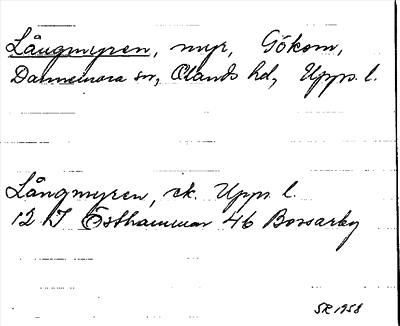 Långmyren, myr, Gökom,
Dannemora sn, Olands hd, Upps. l.
Långmyren, ek. Upps. l.
12 I Östhammar 46 Borsarby
SR 1958